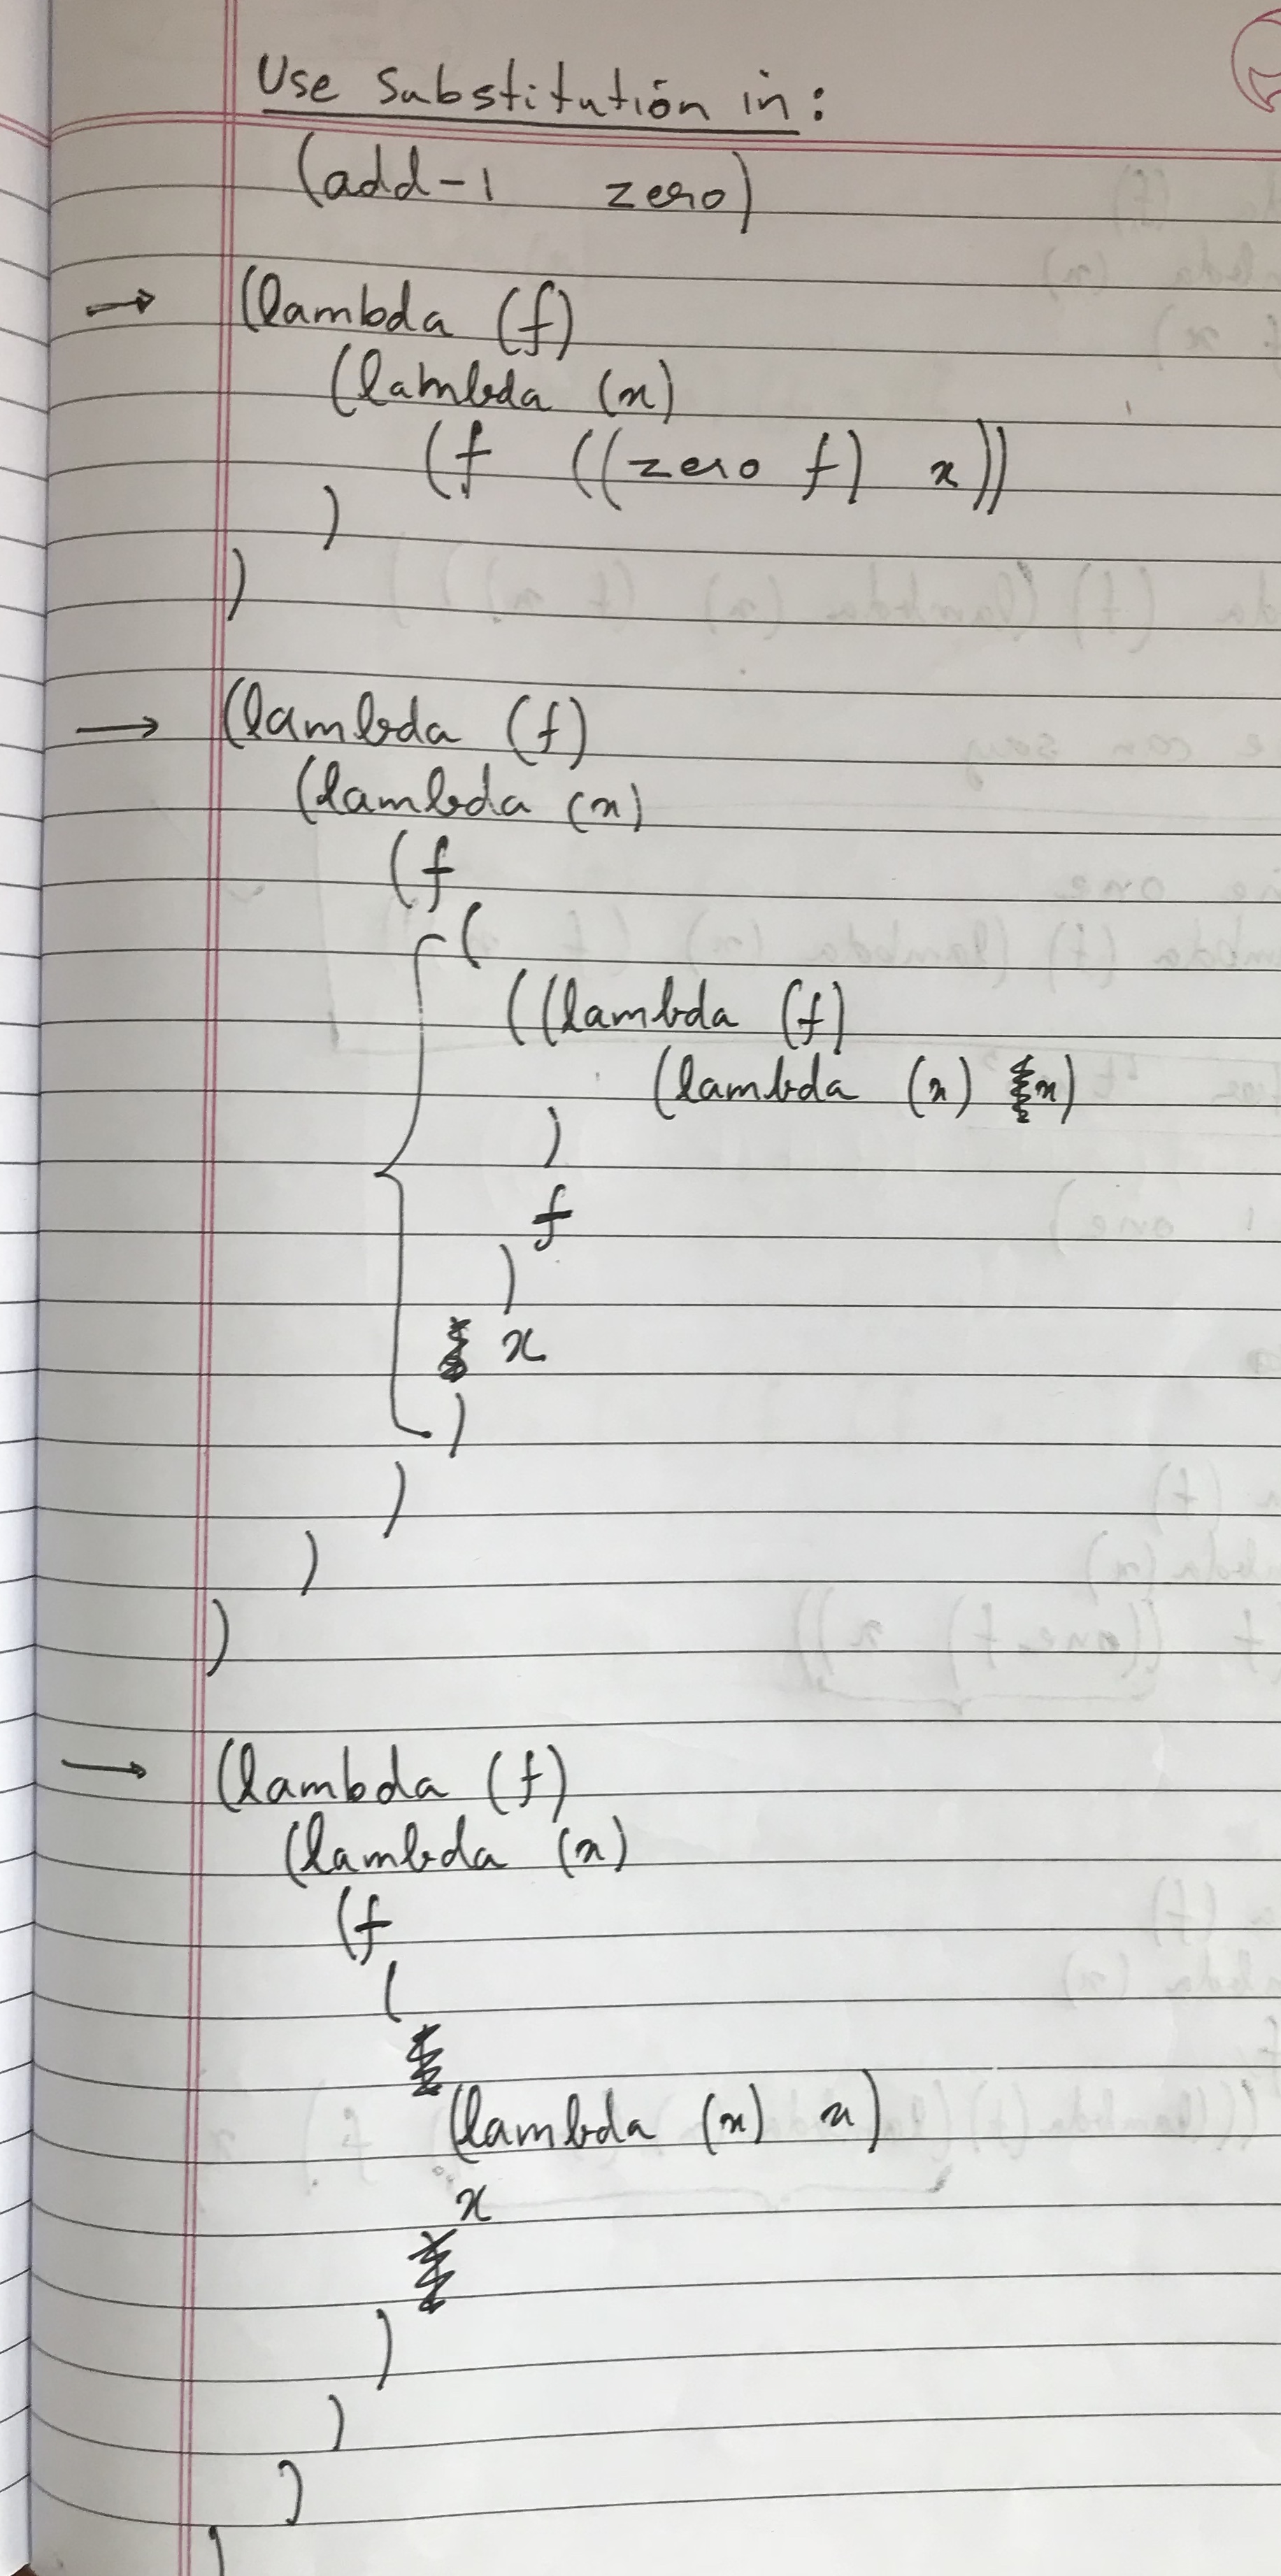 Use Substitution in:
(add-1 zero)
→ (lambda (f)
(lambda (x)
(f ((zero f) x))
)
)
→ (lambda (f)
(lambda (x)
(f
(
((lambda (f)
(lambda (x) x)
)
f
)
x
)
)
)
)
→ (lambda (f)
(lambda (x)
(f
(
(lambda (x) x)
x
)
)
)
)